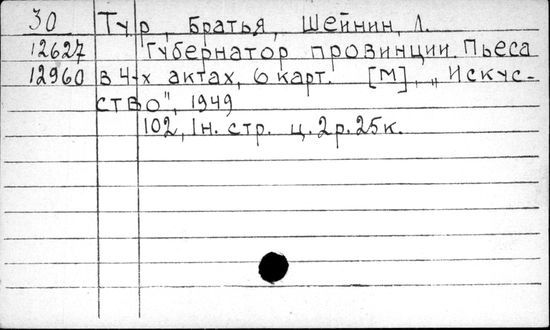 30 Тур, Братья, Шейнин, Л.
12627 Губернатор провинции. Пьеса
12960 в 4-х актах, 6 карт. [М], „Искус-
ство", 1949
102, 1н. стр. ц. 2р. 25к.